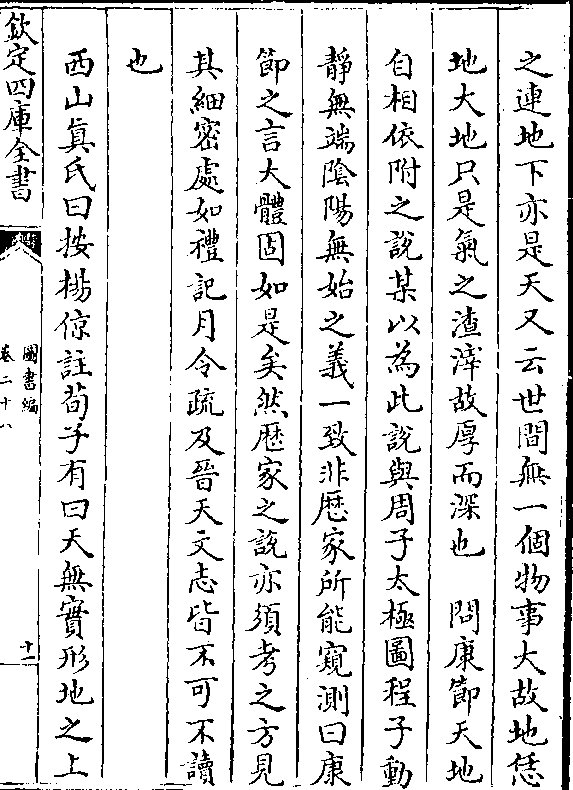 之連地下亦是天又云世間無一個物事大故地恁
地大地只是氣之渣滓故厚而深也　問康節天地
自相依附之說某以為此說與周子太極圖程子動
靜無端隂陽無始之義一致非厯家所能窺測曰康
節之言大體固如是矣然厯家之說亦須考之方見
其細密處如禮記月令疏及晉天文志皆不可不讀
也
西山真氏曰按楊倞註荀子有曰天無實形地之上
欽定四庫全書
圖書編
卷二十八
十一